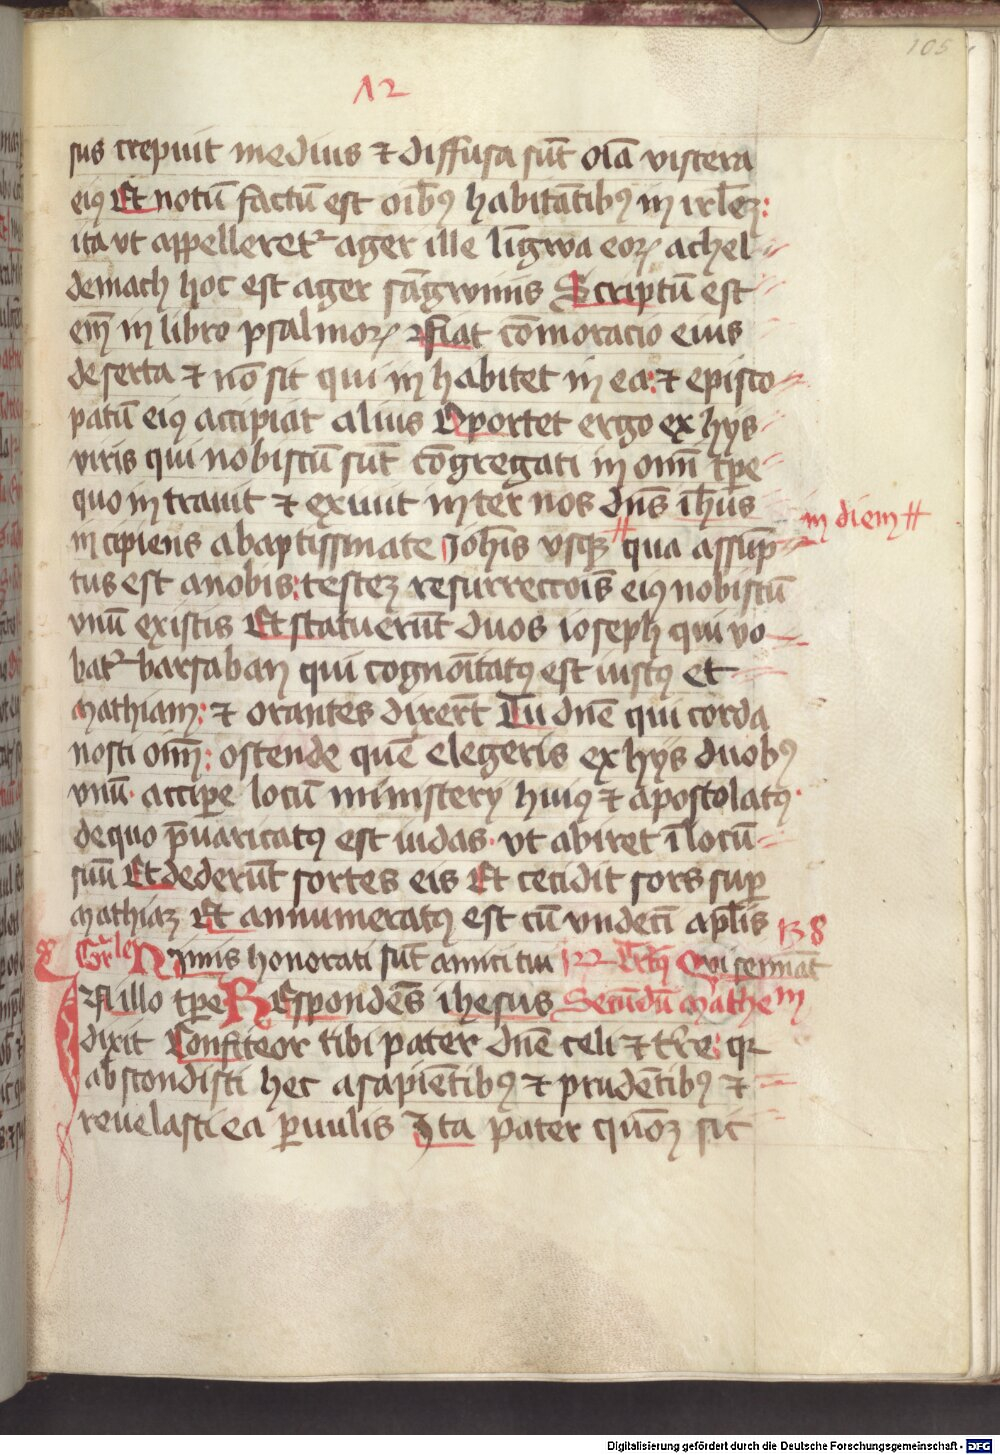 105
12
sus crepuit medius ⁊ diffusa sūt oīa viscera
eiꝰ Et notū factū est oībꝰ habitātibꝰ in irłeꝫ:
ita vt appelleret᷑ ager ille līgwa eoꝝ achel
demach hoc est ager sāgwinis Scriptū est
em̄ in libro psalmoꝝ Fiat cōmoracio eius
deserta ⁊ nō sit qui in habitet in ea: ⁊ episco
patū eiꝰ accipiat alius Oportet ergo ex hys
viris qui nobiscū sūt cōgregati in om̄i tꝑe
quo intrauit ⁊ exiuit inter nos dn̄s ih̄us
incipiens abaptissmate Joh̄is vsqꝫ # qua assūp
in diem #
tus est anobis: testeꝫ resurrecc̄ois eiꝰ nobiscū
vnū ex istis Et statuerūt duos ioseph qui vo
bat᷑ barsaban qui cognoī̄atꝰ est iustꝰ et
mathiam: ⁊ orantes dixerūt Tu dn̄e qui corda
nosti oīm̄: ostende quē elegeris ex hys duobꝰ
vnū· accipe locū ministery huiꝰ ⁊ apostolatꝰ·
dequo p̄uaricatꝰ est iudas· vt abiret ī locū
suū Et dederūt sortes eis Et cecidit sors suꝑ
mathiaꝫ Et annumeratꝰ est cū vndecī apłis
Gr̄le Nimis honorati sūt amici tui Qui semināt 138
In illo tꝑe REspondēs ihesus Secūdū mathe m
dixit Confiteor tibi pater dn̄e celi ⁊ tr̄re: qꝛ
abscondisti hec asapiētibꝰ ⁊ prudētibꝰ ⁊
reuelasti ea ꝑuulis Ita pater qm̄oꝫ sic
Digitalisierung gefördert durch die Deutsche Forschungsgemeinschaft - DFG